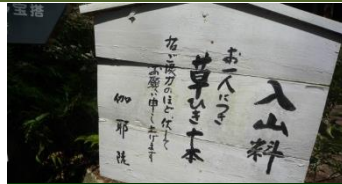 入山料
お一人につき
草ひき十本
右ご協力のほど、伏して
お願い申し上げます
伽耶院
宝搭